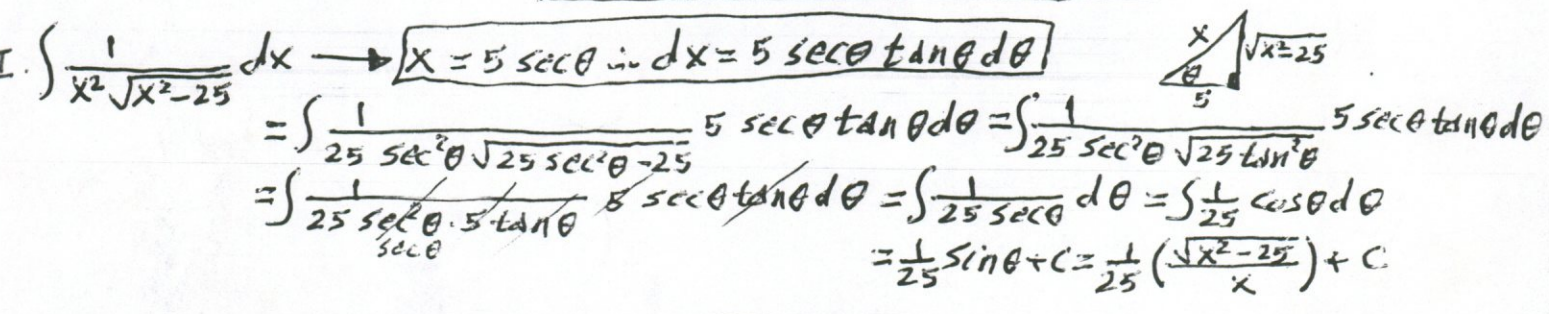 I. ∫ 1/(x²√(x²-25)) dx → x = 5 secθ ∴ dx = 5 secθ tanθ dθ x √x²-25 θ 5
= ∫ 1/(25 sec²θ √(25 sec²θ - 25)) 5 secθ tanθ dθ = ∫ 1/(25 sec²θ √(25 tan²θ)) 5 secθ tanθ dθ
= ∫ 1/(25 sec²θ · 5 tanθ) 5 secθ tanθ dθ = ∫ 1/(25 secθ) dθ = ∫ 1/25 cosθ dθ
secθ
= 1/25 sinθ + C = 1/25 (√(x²-25)/x) + C